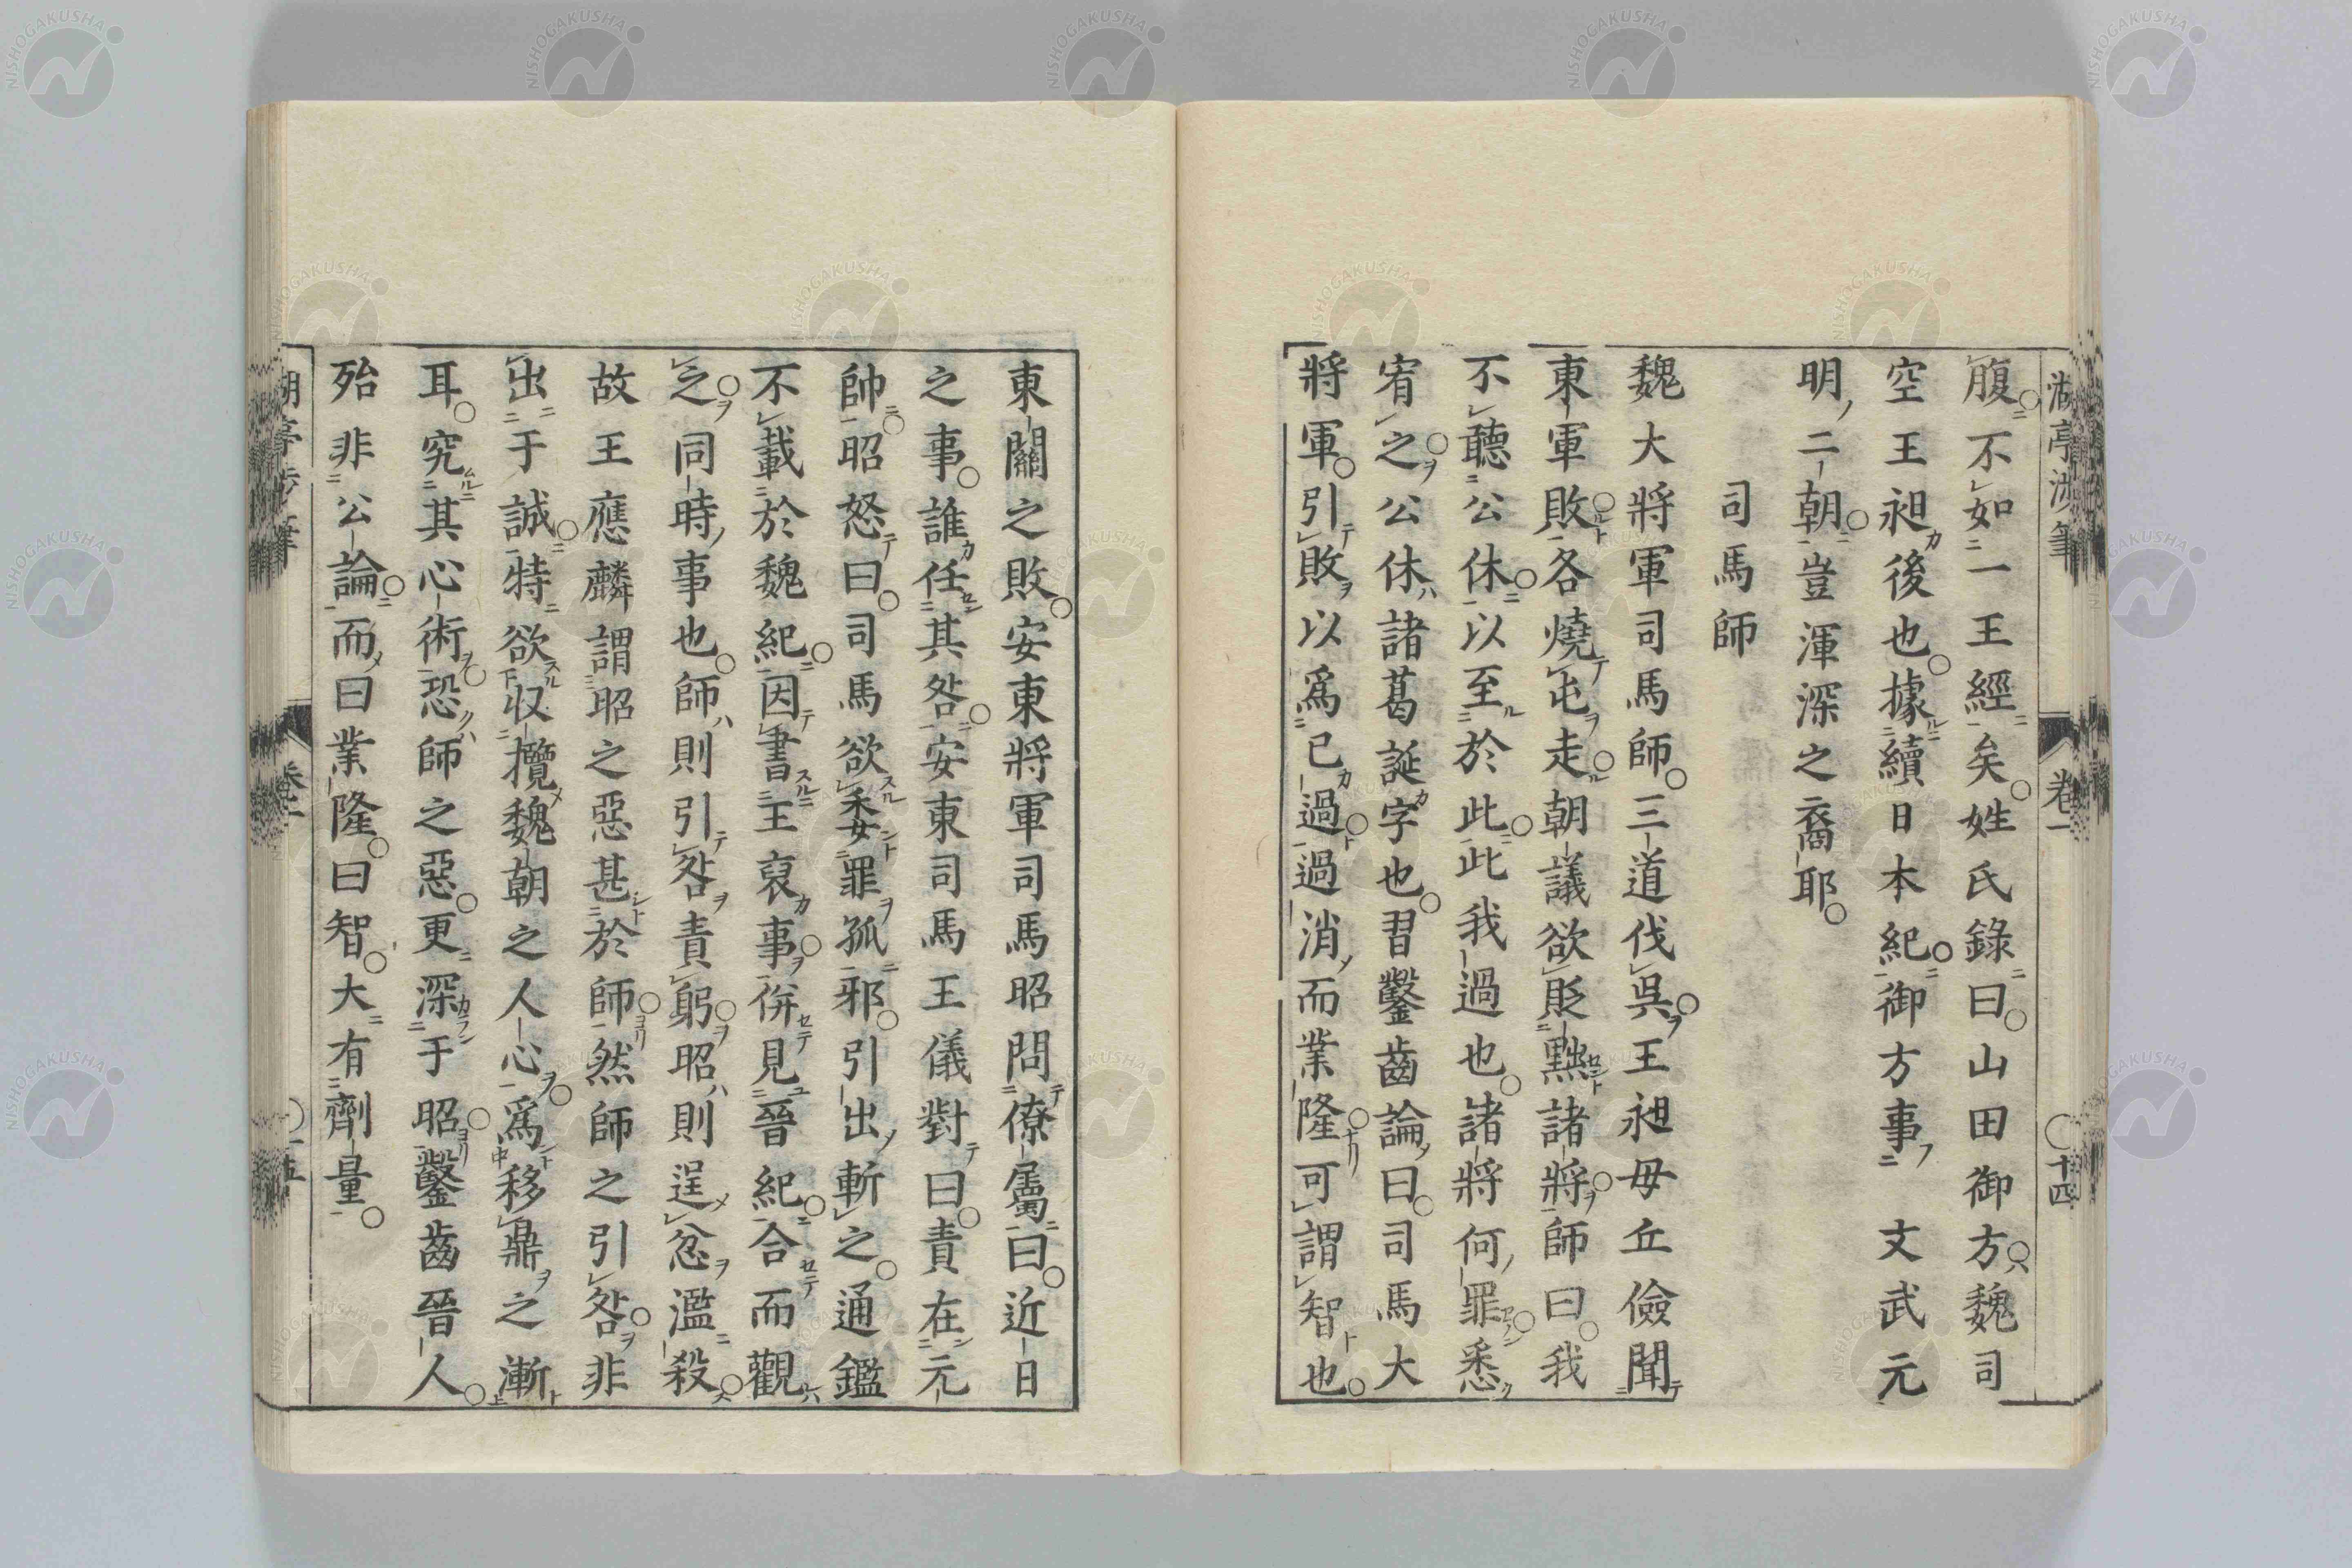 腹不如一王經矣姓氏錄曰山田御方魏司
空王昶後也據續日本紀御方事文武元
明二朝豈渾深之裔耶
司馬師
魏大將軍司馬師三道伐吳王昶毋丘儉聞
東軍敗各燒屯走朝議欲貶黜諸將師曰我
不聽公休以至於此此我過也諸將何罪悉
宥之公休諸葛誕字也習鑿齒論曰司馬大
將軍引敗以爲已過過消而業隆可謂智也
卷一
十四
東關之敗安東將軍司馬昭問僚屬曰近日
之事誰任其咎安東司馬王儀對曰責在元
帥昭怒曰司馬欲委罪孤邪引出斬之通鑑
不載於魏紀因書王裒事併見晉紀合而觀
之同時事也師則引咎責躬昭則逞忿濫殺
故王應麟謂昭之惡甚於師然師之引咎非
出于誠特欲収攬魏朝之人心爲移鼎之漸
耳究其心術恐師之惡更深于昭鑿齒晉人
殆非公論而曰業隆曰智大有劑量
NISHOGAKUSHA